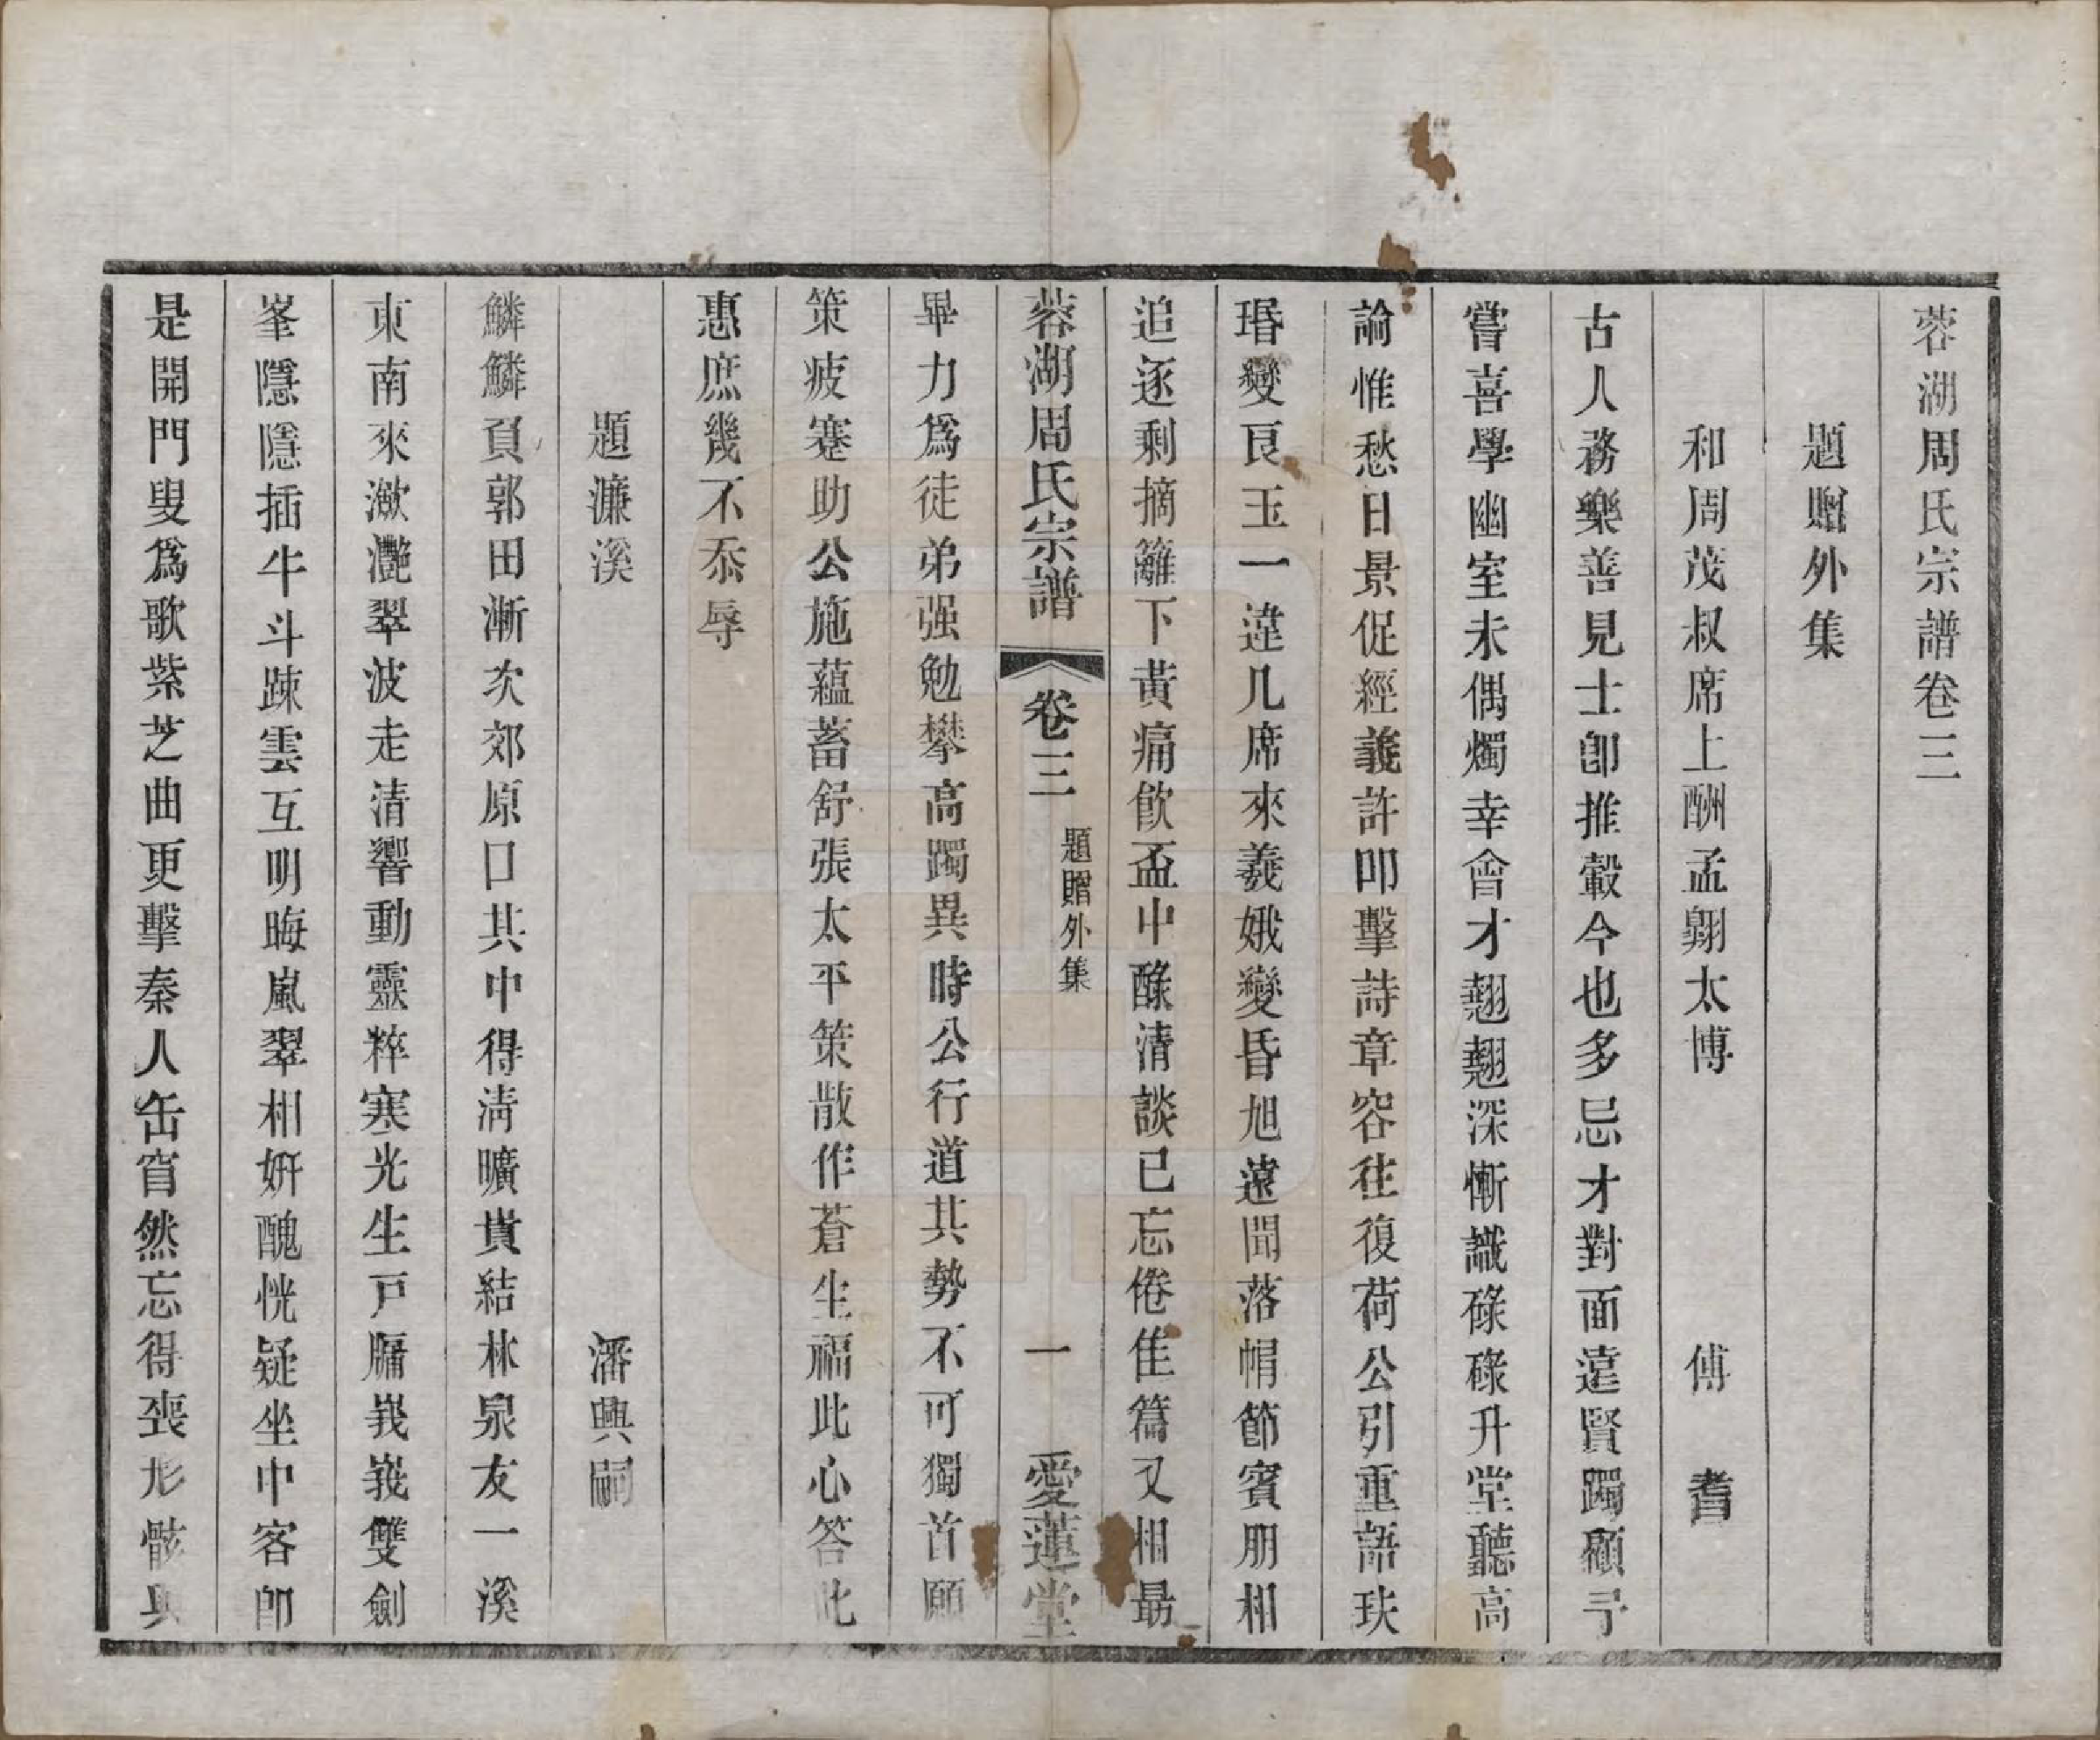 蓉湖周氏宗譜卷三
題贈外集
和周茂叔席上酬孟翱太博　傅耆
古人務樂善見士卽推轂今也多忌才對面遠賢躅顧予
嘗喜學幽室未偶燭幸會才翹翹深慚識碌碌升堂聽高
論惟愁日景促經義許叩擊詩章容往復荷公引重語玞
瑉變良玉一違几席來羲娥變昏旭遠聞落帽節賓朋相
追逐剩摘籬下黃痛飮盃中醁清談已忘倦隹篇又相勗
蓉湖周氏宗譜　卷三　題贈外集　一　愛蓮堂
畢力爲徒弟强勉攀高躅異時公行道其勢不可獨首願
策疲蹇助公施蘊蓄舒張太平策散作蒼生福此心答此
惠庶幾不忝辱
題濂溪　潘興嗣
鱗鱗負郭田漸次郊原口其中得清曠貴結林泉友一溪
東南來瀲灩翠波走清響動靈粹寒光生戸牖峩峩雙劍
峯隱隱插牛斗踈雲互明晦嵐翠相妍醜恍疑坐中客卽
是開門叟爲歌紫芝曲更擊秦人缶窅然忘得喪形骸與